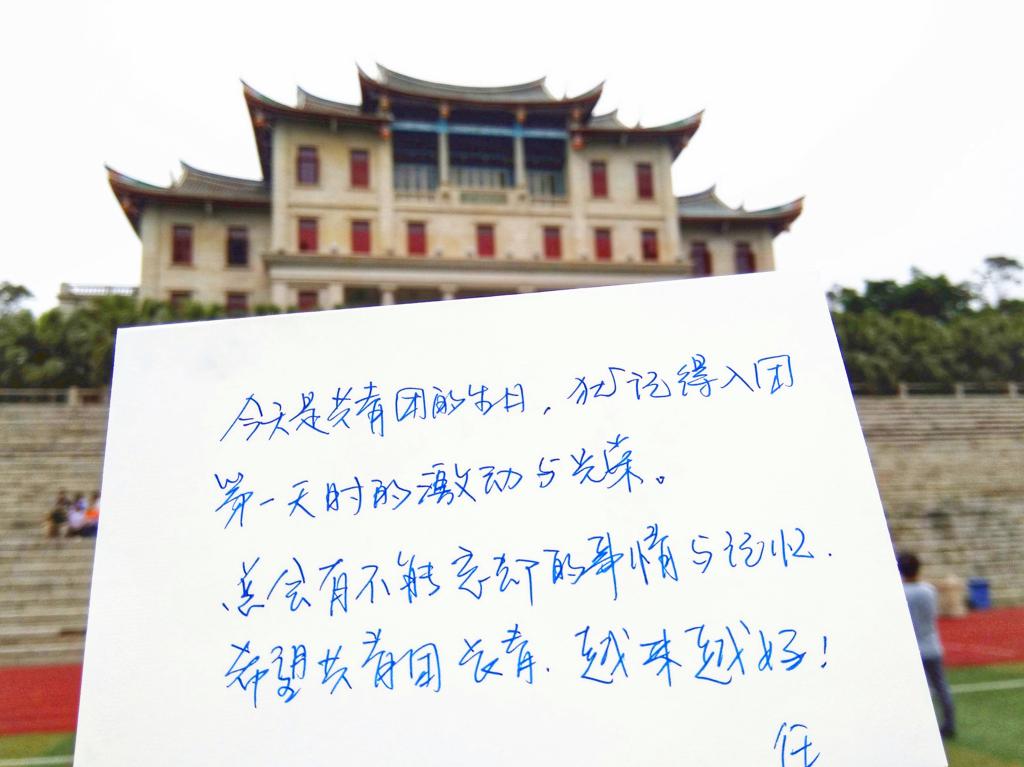 今天是共青团的生日，犹记得入团
第一天时的激动与光荣。
总会有不能忘却的事情与记忆.
希望共青团长青.越来越好！
任